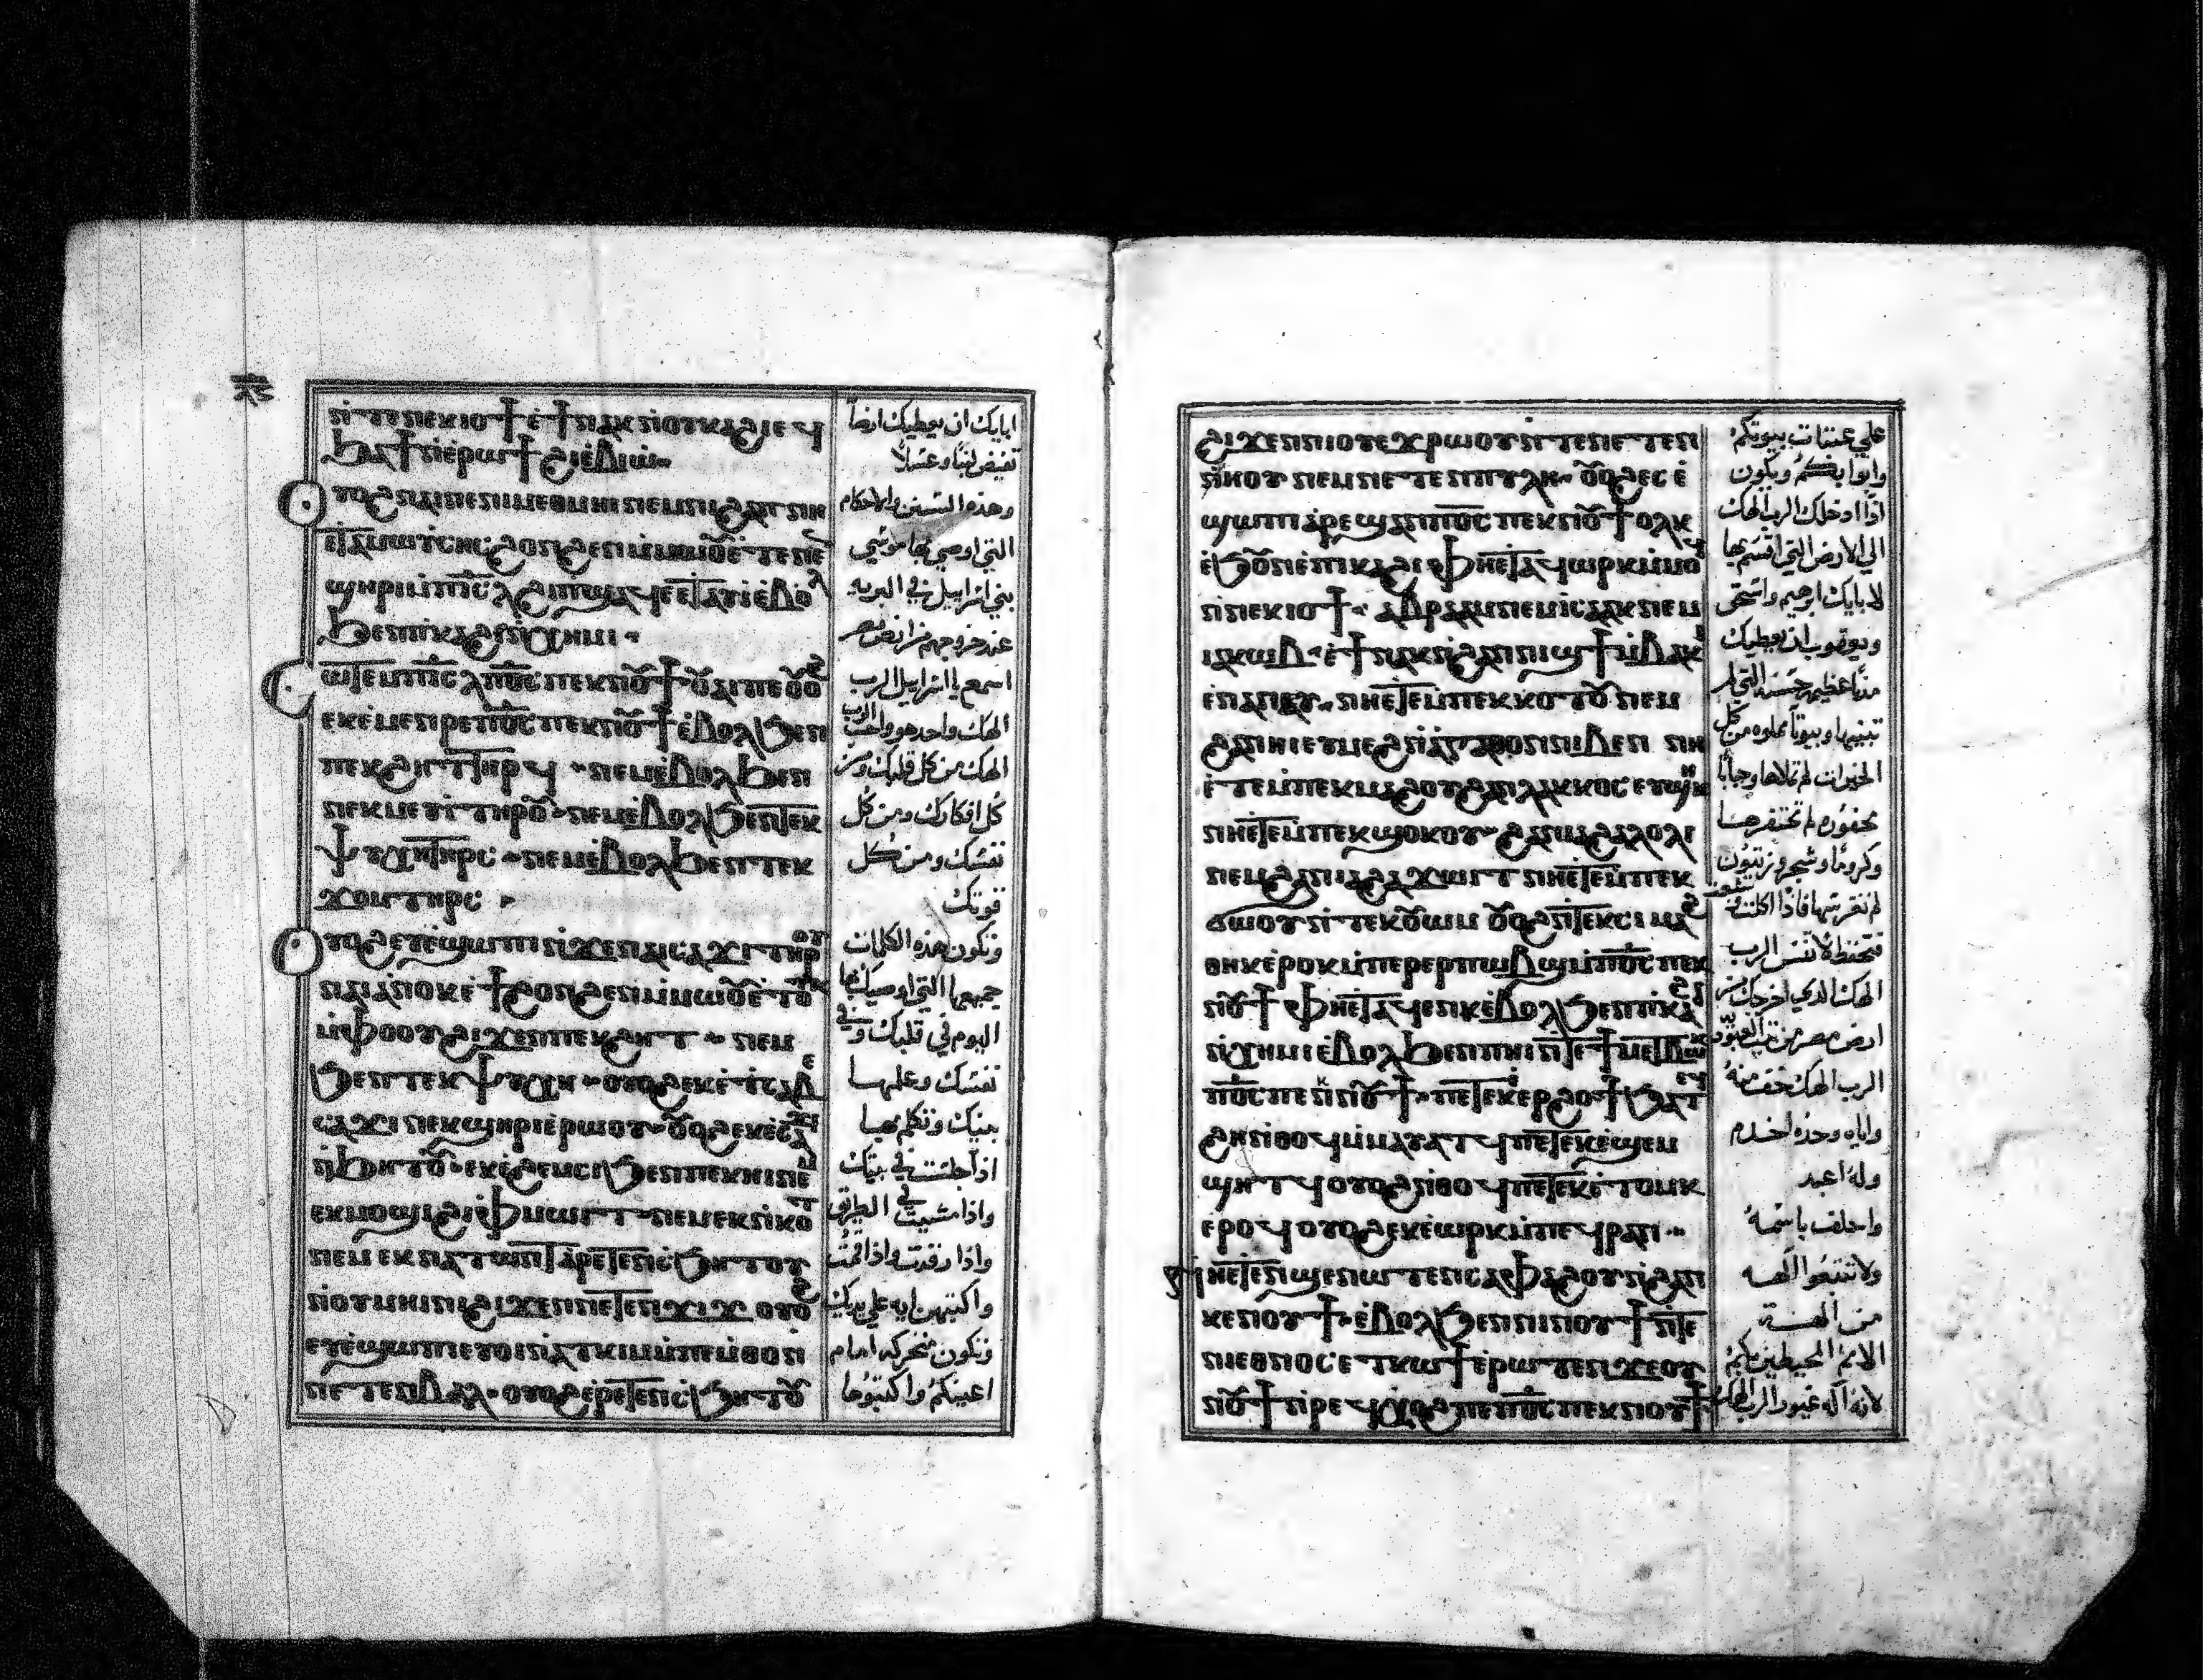 ⲛ̀ⲧⲉⲛⲉⲕⲓⲟϯ ⲉ̀ϯⲛⲁⲕ ⲛ̀ⲟⲩⲕⲁϩⲓ ⲉϥ
ϧⲁϯ ⲛ̀ⲉⲣⲱϯ ϩⲓ ⲉ̀ⲃⲓⲱ
ⲟⲩⲟϩ ⲛⲁⲓⲛⲉ ⲛⲓⲙⲉⲑⲙⲏⲓ ⲛⲉⲙ ⲛⲓϩⲁⲡ ⲛⲏ
ⲉⲧⲁⲙⲱⲩⲥⲏⲥ ϩⲟⲛϩⲉⲛ ⲙ̀ⲙⲱⲟⲩ ⲉ̀ⲧⲉⲛⲉⲛ
ϣⲏⲣⲓ ⲙ̀ⲡⲓⲥ̅ⲗ ϩⲓ ⲡϣⲁϥⲉ ⲉⲧⲁⲩⲓ̀ ⲉ̀ⲃⲟⲗ
ϧⲉⲛ ⲡⲕⲁϩⲓ ⲛ̀ⲭⲏⲙⲓ
ⲥⲱⲧⲉⲙ ⲡⲓⲥ̅ⲗ ⲡ̅ⲟ̅ⲥ̅ ⲡⲉⲕⲛⲟⲩϯ ⲟⲩⲁⲓ ⲡⲉ ⲟⲩⲟϩ
ⲉⲕⲉ̀ⲙⲉⲛⲣⲉ ⲡ̅ⲟ̅ⲥ̅ ⲡⲉⲕⲛⲟⲩϯ ⲉ̀ⲃⲟⲗ ϧⲉⲛ
ⲡⲉⲕϩⲏⲧ ⲧⲏⲣϥ ⲛⲉⲙ ⲉ̀ⲃⲟⲗ ϧⲉⲛ
ⲛⲉⲕⲙⲉⲩⲓ̀ ⲧⲏⲣⲟⲩ ⲛⲉⲙ ⲉ̀ⲃⲟⲗ ϧⲉⲛ ⲧⲉⲕ
ⲯⲩⲭⲏ ⲧⲏⲣⲥ ⲛⲉⲙ ⲉ̀ⲃⲟⲗ ϧⲉⲛ ⲧⲉⲕ
ϫⲟⲙ ⲧⲏⲣⲥ
ⲟⲩⲟϩ ⲉⲩⲉ̀ϣⲱⲡⲓ ⲛ̀ϫⲉ ⲛⲁⲓⲥⲁϫⲓ ⲧⲏⲣⲟⲩ
ⲛⲁⲓ ⲁⲛⲟⲕ ⲉ̀ϯϩⲟⲛϩⲉⲛ ⲙ̀ⲙⲱⲟⲩ ⲉ̀ⲧⲟⲧⲕ
ⲙ̀ⲫⲟⲟⲩ ϩⲓϫⲉⲛ ⲡⲉⲕϩⲏⲧ ⲛⲉⲙ
ϧⲉⲛ ⲧⲉⲕⲯⲩⲭⲏ ⲟⲩⲟϩ ⲉⲕⲉ̀ⲧⲥⲁⲃⲉ
ⲛⲉⲕϣⲏⲣⲓ ⲉ̀ⲣⲱⲟⲩ ⲟⲩⲟϩ ⲉⲕⲉ̀ⲥⲁϫⲓ
ⲛ̀ϧⲏⲧⲟⲩ ⲉⲕϩⲉⲙⲥⲓ ϧⲉⲛ ⲡⲉⲕⲏⲓ ⲛⲉⲙ
ⲉⲕⲙⲟϣⲓ ϩⲓ ⲫⲙⲱⲓⲧ ⲛⲉⲙ ⲉⲕⲛ̀ⲕⲟⲧ
ⲛⲉⲙ ⲉⲕⲛⲁⲧⲱⲛⲕ ⲁⲣⲉⲧⲉⲛⲥ̀ϧⲏⲧⲟⲩ
ⲛ̀ⲟⲩⲙⲏⲓⲛⲓ ϩⲓϫⲉⲛ ⲛⲉⲧⲉⲛϫⲓϫ ⲟⲩⲟϩ
ⲉⲩⲉ̀ϣⲱⲡⲓ ⲉⲩⲟⲓ ⲛ̀ⲁⲧⲕⲓⲙ ⲙ̀ⲡⲉⲙⲑⲟ ⲛ̀
ⲛⲉⲧⲉⲛⲃⲁⲗ ⲟⲩⲟϩ ⲉ̀ⲣⲉⲧⲉⲛⲥ̀ϧⲏⲧⲟⲩ
ابايك ان يعطيك ارضاً
تفيض لبناً وعسلاً
وهذه السنن والاحكام
التي اوصي بها موسي
بني اسراييل في البريه
عند خروجهم من ارض مصر
اسمع يا اسراييل الرب
الهك واحد هو واحب الرب
الهك من كل قلبك ومن
كل افكارك ومن كل
نفسك ومن كل
قوتك
وتكون هذه الكلمات
جميعها التي اوصيك بها
اليوم في قلبك وفي
نفسك وعلمها
بنيك وتكلم بها
اذا جلست في بيتك
واذا مشيت في الطريق
واذا رقدت واذا قمت
واكتبهن ايه علي يديك
وتكون متحركه امام
اعينكم واكتبوها
ϩⲓϫⲉⲛ ⲛⲓⲟⲩⲉϫⲣⲱⲟⲩ ⲛ̀ⲧⲉ ⲛⲉⲧⲉⲛ
ⲏⲟⲩ ⲛⲉⲙ ⲛⲉⲧⲉⲛⲡⲩⲗⲏ ⲟⲩⲟϩ ⲉⲥⲉ̀
ϣⲱⲡⲓ ⲁⲣⲉϣⲁⲛ ⲡ̅ⲟ̅ⲥ̅ ⲡⲉⲕⲛⲟⲩϯ ⲟⲗⲕ
ⲉ̀ϧⲟⲩⲛ ⲉ̀ⲡⲓⲕⲁϩⲓ ⲫⲏⲉⲧⲁϥⲱⲣⲕ ⲙ̀ⲙⲟϥ
ⲛ̀ⲛⲉⲕⲓⲟϯ ⲁⲃⲣⲁⲁⲙ ⲛⲉⲙ ⲓⲥⲁⲁⲕ ⲛⲉⲙ
ⲓⲁⲕⲱⲃ ⲉ̀ϯⲛⲁⲕ ⲛ̀ϩⲁⲛⲛⲓϣϯ ⲙ̀ⲃⲁⲕⲓ
ⲉⲛⲁⲛⲉⲩ ⲛⲏⲉⲧⲉⲙⲡⲉⲕⲕⲟⲧⲟⲩ ⲛⲉⲙ
ϩⲁⲛⲏⲓ ⲉⲩⲙⲉϩ ⲛ̀ⲁⲅⲁⲑⲟⲛ ⲛⲓⲃⲉⲛ ⲛⲏ
ⲉ̀ⲧⲉⲙⲡⲉⲕⲙⲁϩⲟⲩ ϩⲁⲛⲗⲁⲕⲕⲟⲥ ⲉⲩϣⲏⲕ
ⲛⲏⲉⲧⲉⲙⲡⲉⲕϣⲟⲕⲟⲩ ϩⲁⲛⲓⲁϩⲁⲗⲟⲗⲓ
ⲛⲉⲙ ϩⲁⲛⲓⲁϩϫⲱⲓⲧ ⲛⲏⲉⲧⲉⲙⲡⲉⲕ
ϭⲱⲟⲩ ⲛ̀ⲧⲉⲕⲟⲩⲱⲙ ⲟⲩⲟϩ ⲛ̀ⲧⲉⲕⲥⲓ ⲙⲁϩ
ⲑⲏⲕ ⲉ̀ⲣⲟⲕ ⲙ̀ⲡⲉⲣⲉⲣⲡⲱⲃϣ ⲙ̀ⲡ̅ⲟ̅ⲥ̅ ⲡⲉⲕ
ⲛⲟⲩϯ ⲫⲏⲉⲧⲁϥⲉⲛⲕ ⲉ̀ⲃⲟⲗ ϧⲉⲛ ⲡⲕⲁϩⲓ
ⲛ̀ⲭⲏⲙⲓ ⲉ̀ⲃⲟⲗ ϧⲉⲛ ⲡⲏⲓ ⲛ̀ⲧⲉ ϯⲙⲉⲧⲃⲱⲕ
ⲡ̅ⲟ̅ⲥ̅ ⲡⲉⲕⲛⲟⲩϯ ⲡⲉⲧⲉⲕⲉ̀ⲉⲣϩⲟϯ ϧⲁⲧⲉϥ
ϩⲏ ⲛ̀ⲑⲟϥ ⲙ̀ⲙⲁⲩⲁⲧϥ ⲡⲉⲧⲉⲕⲉ̀ϣⲉⲙ
ϣⲏⲧϥ ⲟⲩⲟϩ ⲛ̀ⲑⲟϥ ⲡⲉⲧⲉⲕⲉ̀ⲧⲟⲙⲕ
ⲉⲣⲟϥ ⲟⲩⲟϩ ⲉⲕⲉ̀ⲱⲣⲕ ⲙ̀ⲡⲉϥⲣⲁⲛ
ⲛⲛⲉⲧⲉⲛϣⲉⲛⲱⲧⲉⲛ ⲥⲁⲫⲁϩⲟⲩ ⲛ̀ϩⲁⲛ
ⲕⲉⲛⲟⲩϯ ⲉ̀ⲃⲟⲗ ϧⲉⲛ ⲛⲓⲛⲟⲩϯ ⲛ̀ⲧⲉ
ⲛⲓⲉⲑⲛⲟⲥ ⲉⲧⲕⲱϯ ⲉ̀ⲣⲱⲧⲉⲛ ϫⲉ ⲟⲩ
ⲛⲟⲩϯ ⲛ̀ⲣⲉϥⲭⲟϩ ⲡⲉ ⲡ̅ⲟ̅ⲥ̅ ⲡⲉⲕⲛⲟⲩϯ
علي عتبات بيوتكم
وابوابكم ويكون
اذا ادخلك الرب الهك
الي الارض التي اقسم بها
لابايك ابرهيم واسحق
ويعقوب ان يعطيك
مدناً عظيمه حسنه التي لم
تبنيها وبيوتاً مملوه من كل
الخيرات لم تملاها وجباباً
محفوره لم تحتفرها
وكروماً وشجر زيتون
لم تغرسها فاذا اكلت وشبعت
فتحتفظ لا تنس الرب
الهك الذي اخرجك من
ارض مصر من بيت العبوديه
الرب الهك خف منه
واياه وحده اخدم
وله اعبد
واحلف باسمه
ولا تتبعوا الهه
من الهة
الامم المحيطين بكم
لانه اله غيور الرب الهك